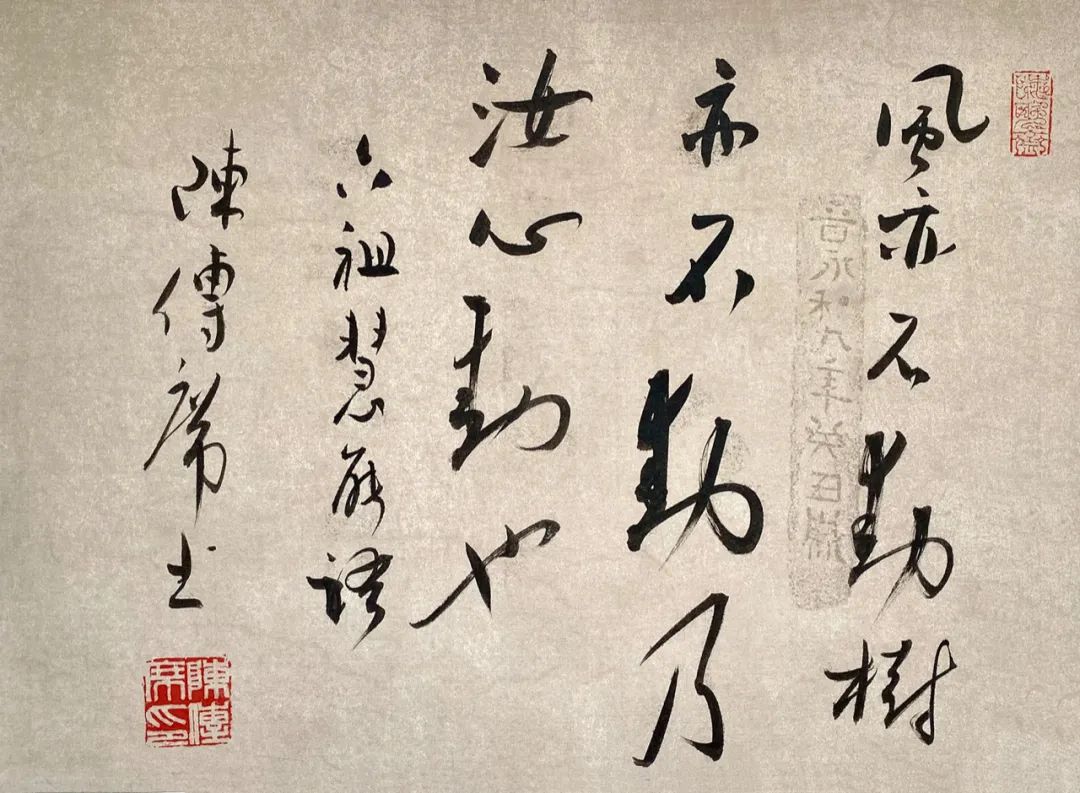 風亦不動樹
亦不動乃
汝心動也
六祖慧能語
陳傳席上
陳傳
席印
晋永和九年